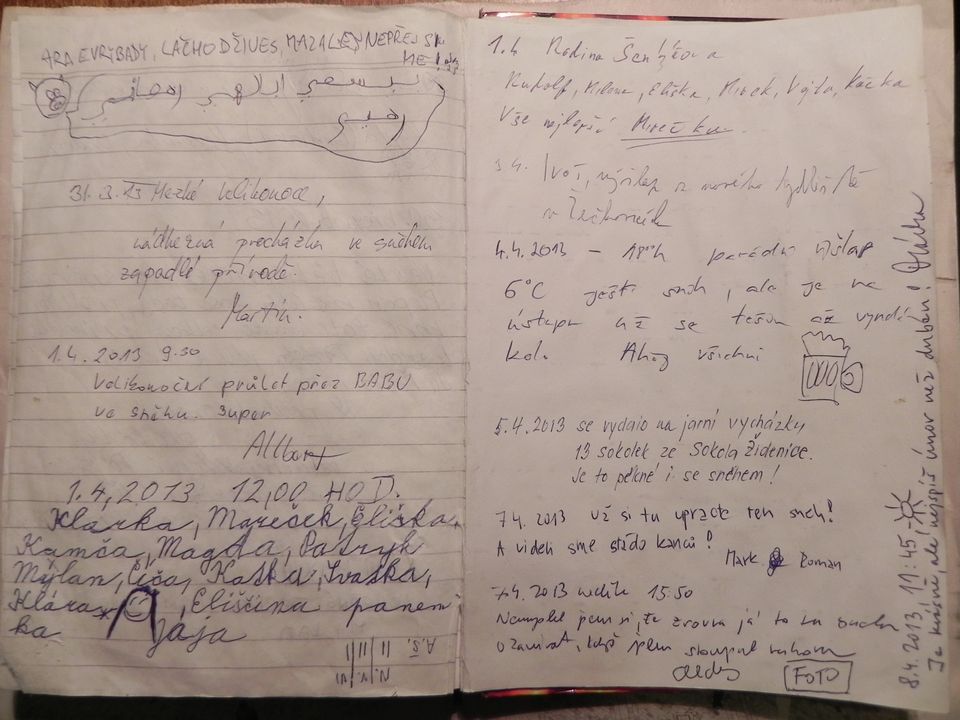 ARA EVRIBADY, LAČHO DŽIVES, MAZALEJ NEPŘEJ SI
ME!
31.3.13 Hezké velikonoce,
nádherná procházka ve suchem
zapadlé přírodě.
Martin.
1.4.2013 9.30
Velikonoční průlet přez BABU
ve sněhu. super
Allbert
1.4.2013 12,00 HOD.
Klárka, Mareček, Eliška,
Kamča, Magda, Patryk
Mylan, Číča, Katka, Ivaška,
Klára, Eliščina panen
ka Jája
A.Š.
N.V.
1.4 Radina
Rudolf, Milena, Eliška, Mirek, Vojta, Kačka
Vše nejlepší Mirečku.
3.4. Ivoš, výšlap z nového bydliště
v
4.4.2013 – 18°°h parádní výšlap
6°C ještě sníh, ale je na
ústupu už se těším až vyndám
kolo Ahoj všichni
5.4.2013 se vydalo na jarní vycházky
13 sokolek ze Sokola Židenice.
Je to pěkné i se sněhem!
7.4.2013 už si tu upracte ten sneh!
A videli sme stádo kanců!
Mark Roman
7.4.2013 neděle 15.50
Nemyslel jsem si, že zrovna já to tu budu
uzavírat, když jsem stoupal nahoru
Aleš
FOTO
8.4.2013, 11:45
Je krásně, ale nejspíš únor než duben!